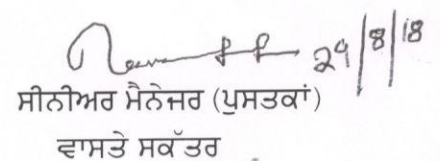 29/8/18
ਸੀਨੀਅਰ ਮੈਨੇਜਰ (ਪੁਸਤਕਾਂ)
ਵਾਸਤੇ ਸਕੱਤਰ